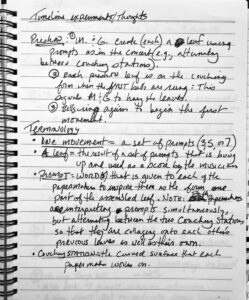 Timeline experiments/thoughts
Prelude: M. & G. create (each) a leaf using
prompts as in the concert (e.g., alternating
between couching stations).
① Each prelude leaf is on the couching
form when the first bells are rung: This
signals M & G to hang the leaves
② Bells ring again to begin the first
movement.
Terminology
• One movement = a set of prompts (3, 5, or 7)
• A leaf = the result of a set of prompts that is hung
up and used as a score by the musician
• Prompt: Word(s) that is given to each of the
papermakers to inspire them as they form one
part of the assembled leaf. Note: papermakers
are interpreting prompts simultaneously,
but alternating between the two couching stations
so that they are collaging onto each other's
previous leaves as well as their own.
• Couching station = the curved surface that each
papermaker works on.